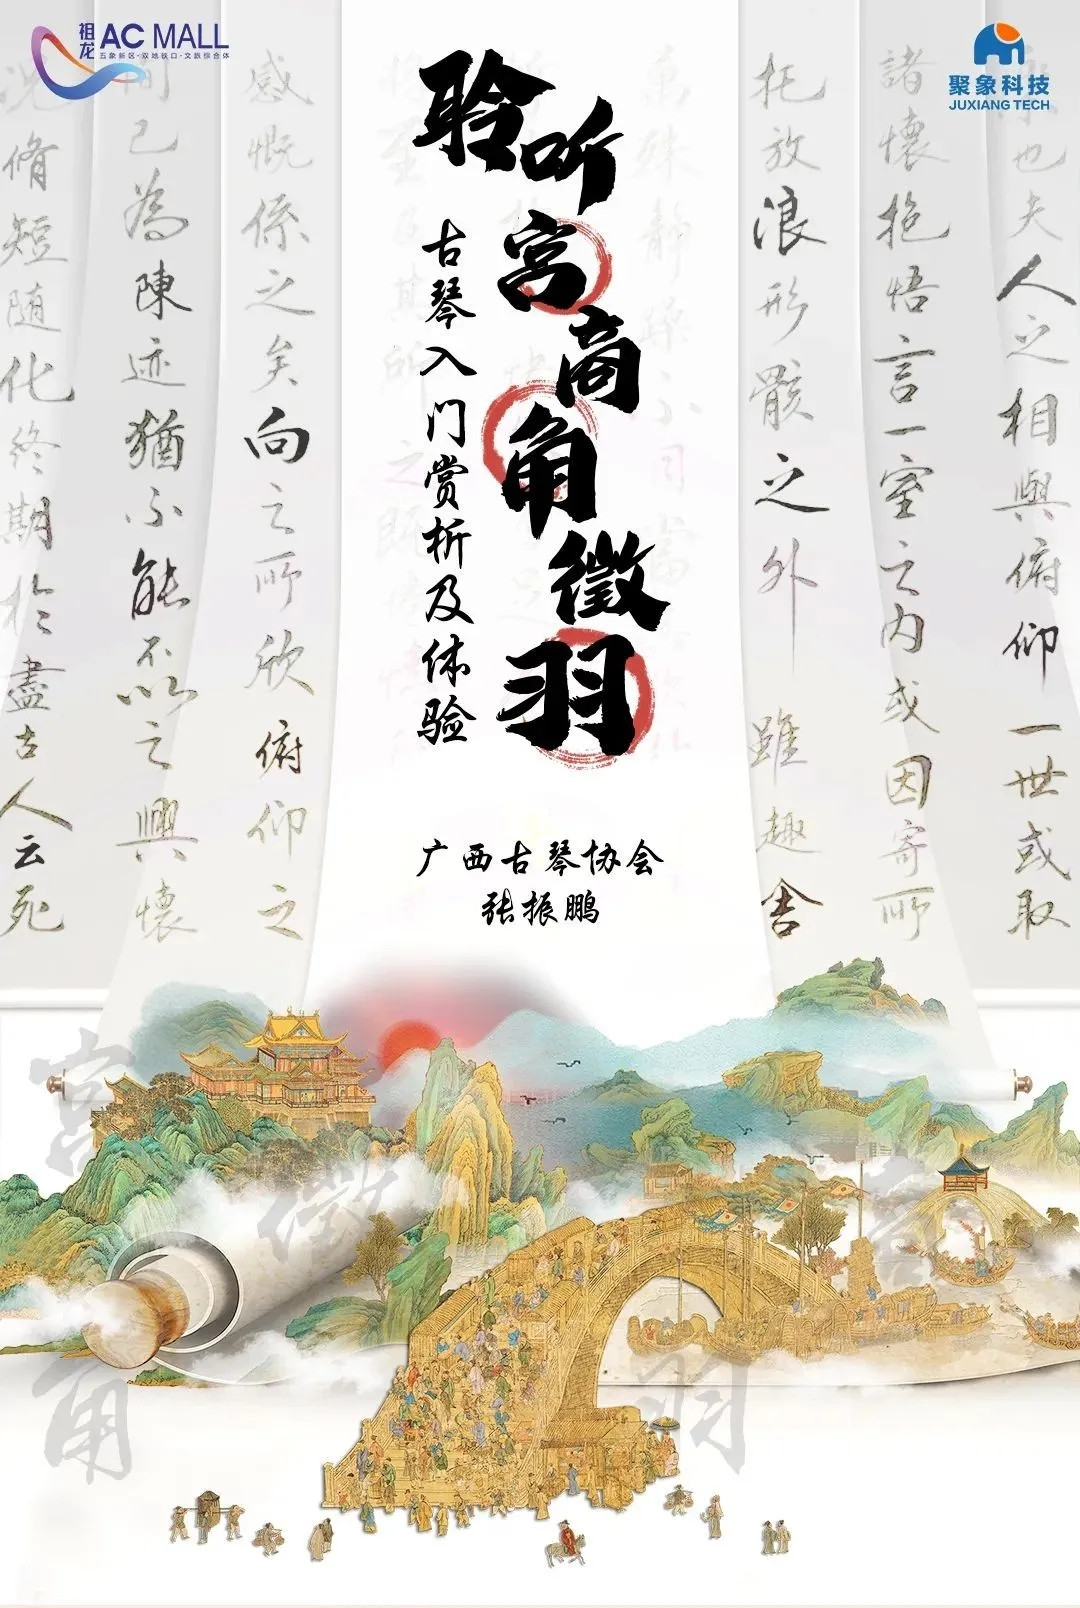 祖龙 AC MALL
五象新区·双地铁口·文旅综合体
聚象科技
JUXIANG TECH
聆听宫商角徵羽
古琴入门赏析及体验
广西古琴协会
张振鹏
也夫人之相與俯仰一世或取
諸懷抱悟言一室之内或因寄所
托放浪形骸之外雖趣舍
感慨係之矣向之所欣俯仰之
間已為陳迹猶不能不以之興懷
况脩短随化終期於盡古人云死
宫
徵
商
角
羽